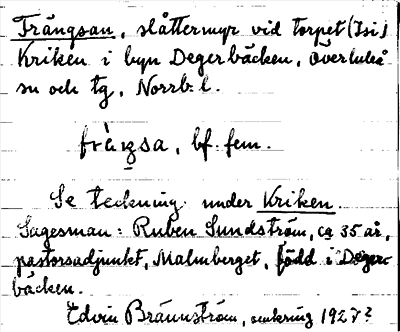 Frängsan, slåttermyr vid torpet (Isi)
Kriken i byn Degerbäcken, Överluleå
sn och tg, Norrb. l.
fràŋsa, bf. fem.
Se teckning under Kriken.
Sagesman: Ruben Sundström, ca 35 år,
pastorsadjunkt, Malmberget, född i Deger-
bäcken.
Edvin Brännström, omkring 1927?